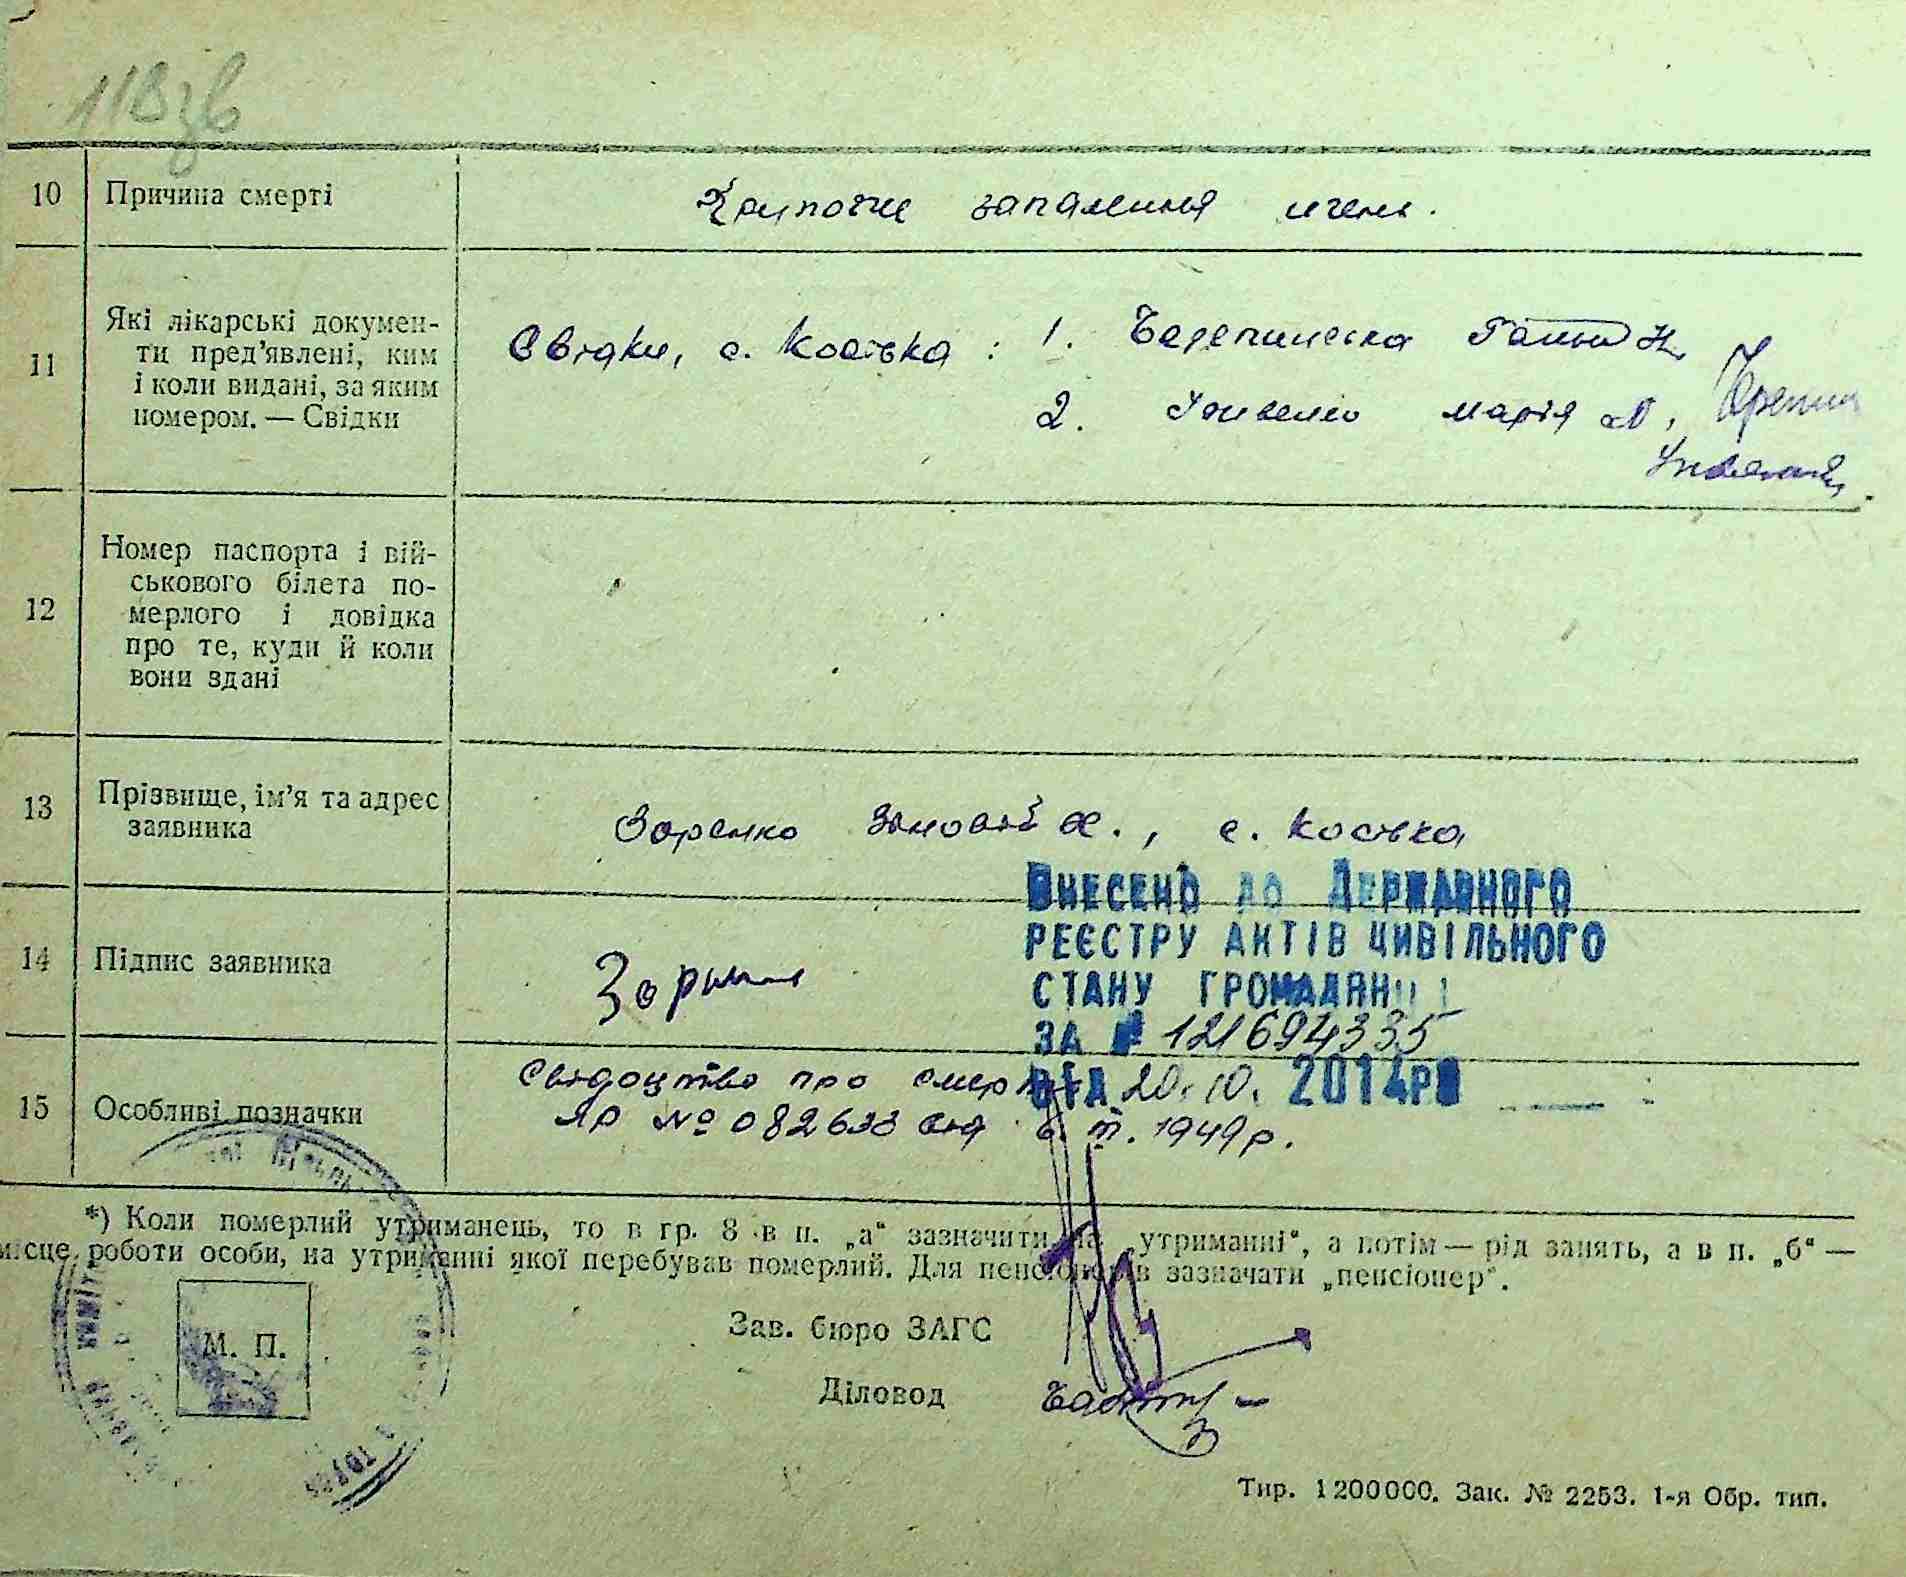 118зв
10 Причина смерті Крупозне запалення легень.
11 Які лікарські докумен-
ти пред’явлені, ким
і коли видані, за яким
номером. — Свідки
Свідки, с. Косівка: 1. Ганна Н.
2. Марія
12 Номер паспорта і вій-
ськового білета по-
мерлого і довідка
про те, куди й коли
вони здані
13 Прізвище, ім’я та адрес
заявника
Зоренко Зіновій х., с. Косівка
14 Підпис заявника
15 Особливі позначки
Свідоцтво про смерть
ЯР № 082633 від 1949 р.
ВНЕСЕНО ДО ДЕРЖАВНОГО
РЕЄСТРУ АКТІВ ЦИВІЛЬНОГО
СТАНУ ГРОМАДЯН
ЗА № 121694335
ВІД 20.10. 2014Р
*) Коли померлий утриманець, то в гр. 8 в п. „а“ зазначити „на утриманні“, а потім — рід занять, а в п. „б“ —
місце роботи особи, на утриманні якої перебував померлий. Для пенсіонерів зазначати „пенсіонер“.
М. П.
Зав. бюро ЗАГС
Діловод
Тир. 1200000. Зак. № 2253. 1-я Обр. тип.